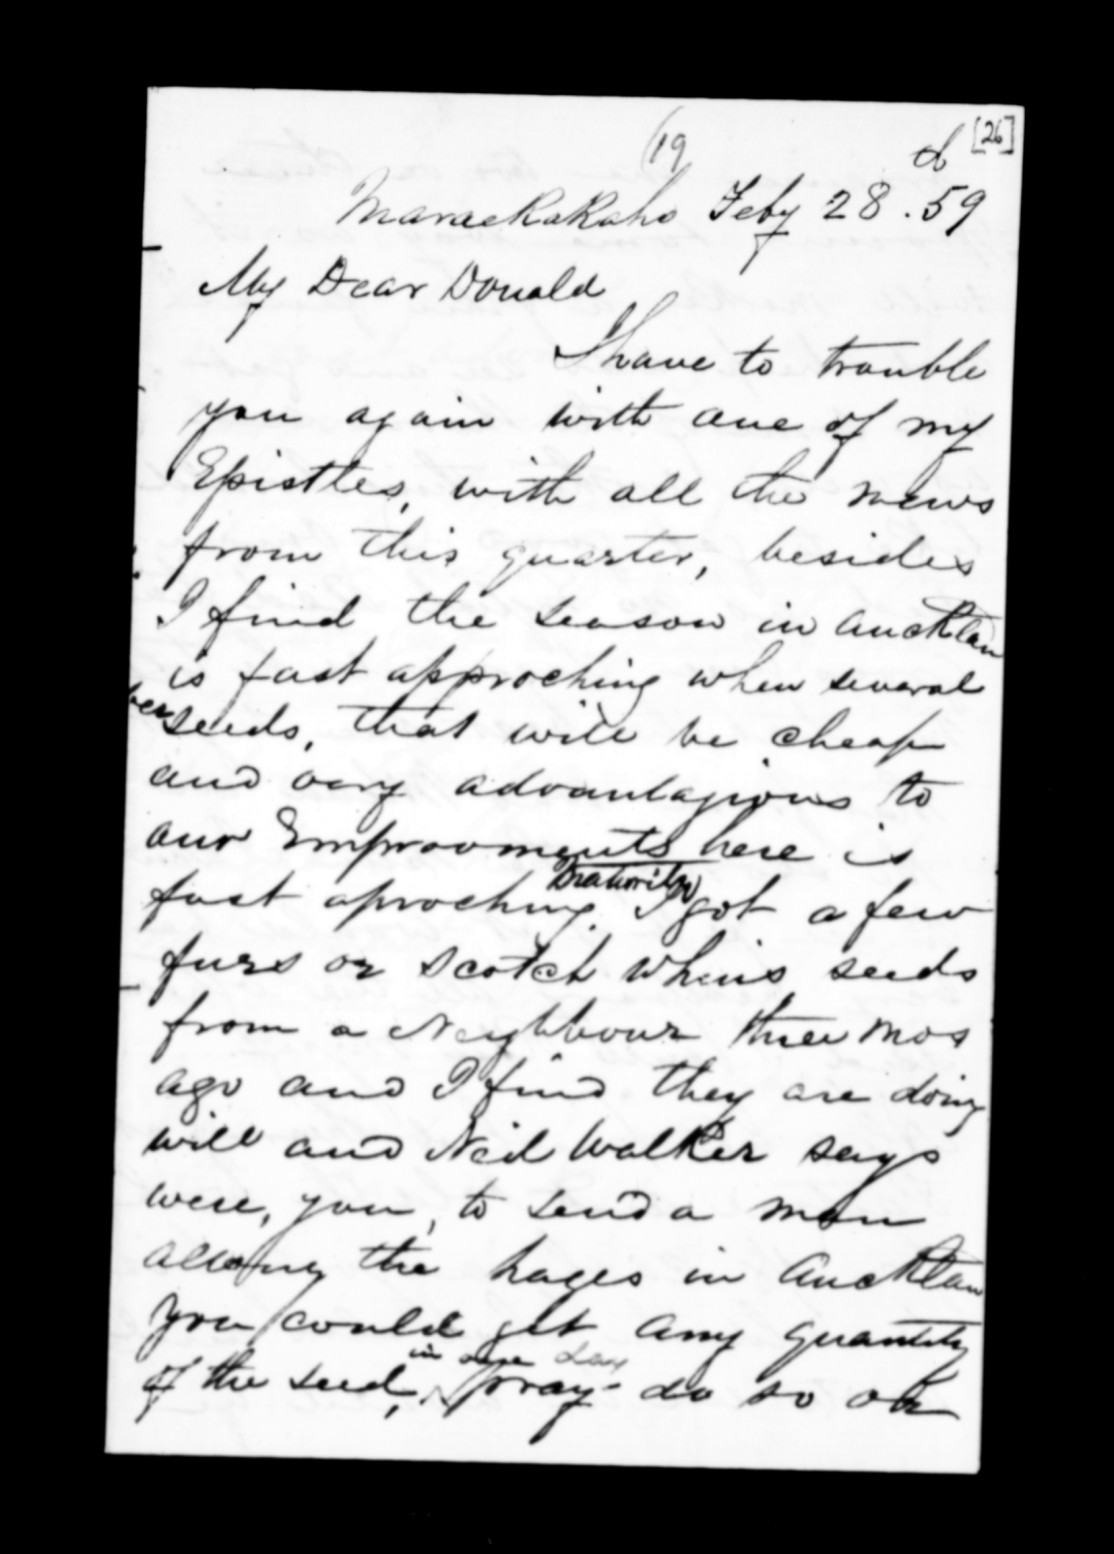 (19
[26]
Maraekakaho Feby 28. 59
My Dear Donald
I have to trouble
you again with one of my
Epistles, with all the news
from this quarter, besides
I find the season in Aucklan
is fast approching when several
seeds, that will be cheap
and very advantagious to
our Emproovments here is
fast aproching. Maturity I got a few
furs or Scotch Whins seeds
from a Neighbour three Mos
ago and I find they are doing
will and Neil Walker says
were, you, to send a man
allong the hages in Aucklan
you could get any quantity
in one day
of the seed, pray do so or